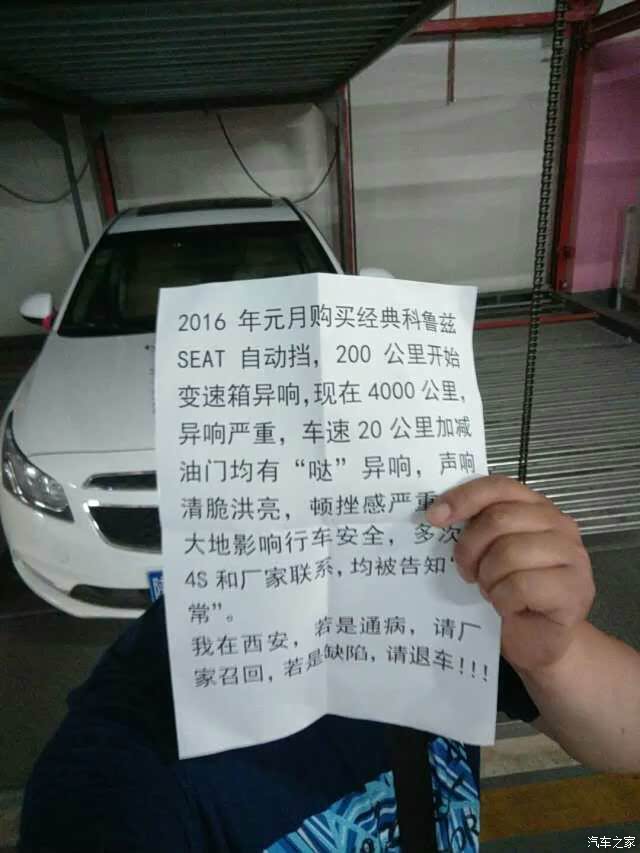 2016 年元月购买经典科鲁兹
SEAT 自动挡，200 公里开始
变速箱异响,现在 4000 公里,
异响严重，车速 20 公里加减
油门均有“哒”异响，声响
清脆洪亮，顿挫感严重
大地影响行车安全，多次
4S 和厂家联系,均被告知“
常”。
我在西安，若是通病，请厂
家召回,若是缺陷,请退车!!!
汽车之家